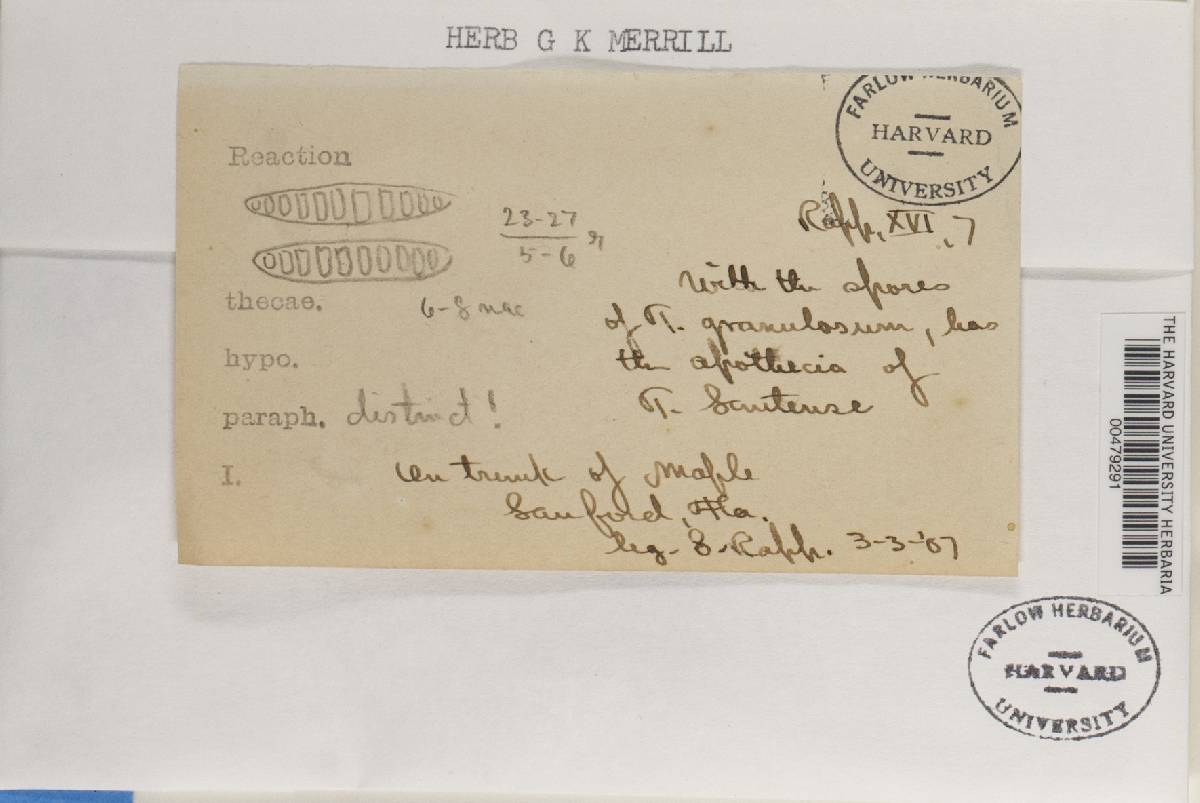 HERB G K MERRILL
FARLOW HERBARIUM
HARVARD
UNIVERSITY
Reaction
23-27
5-6
Rapp, XVI, 7
With the spores
of T. granulosum, has
the apothecia of
T. Santense
thecae. 6-8 nae
hypo.
paraph. distinct!
I.
On trunk of Maple
Sanford, Fla.
leg. S. Rapp. 3-3-'07
THE HARVARD UNIVERSITY HERBARIA
00479291
FARLOW HERBARIUM
HARVARD
UNIVERSITY